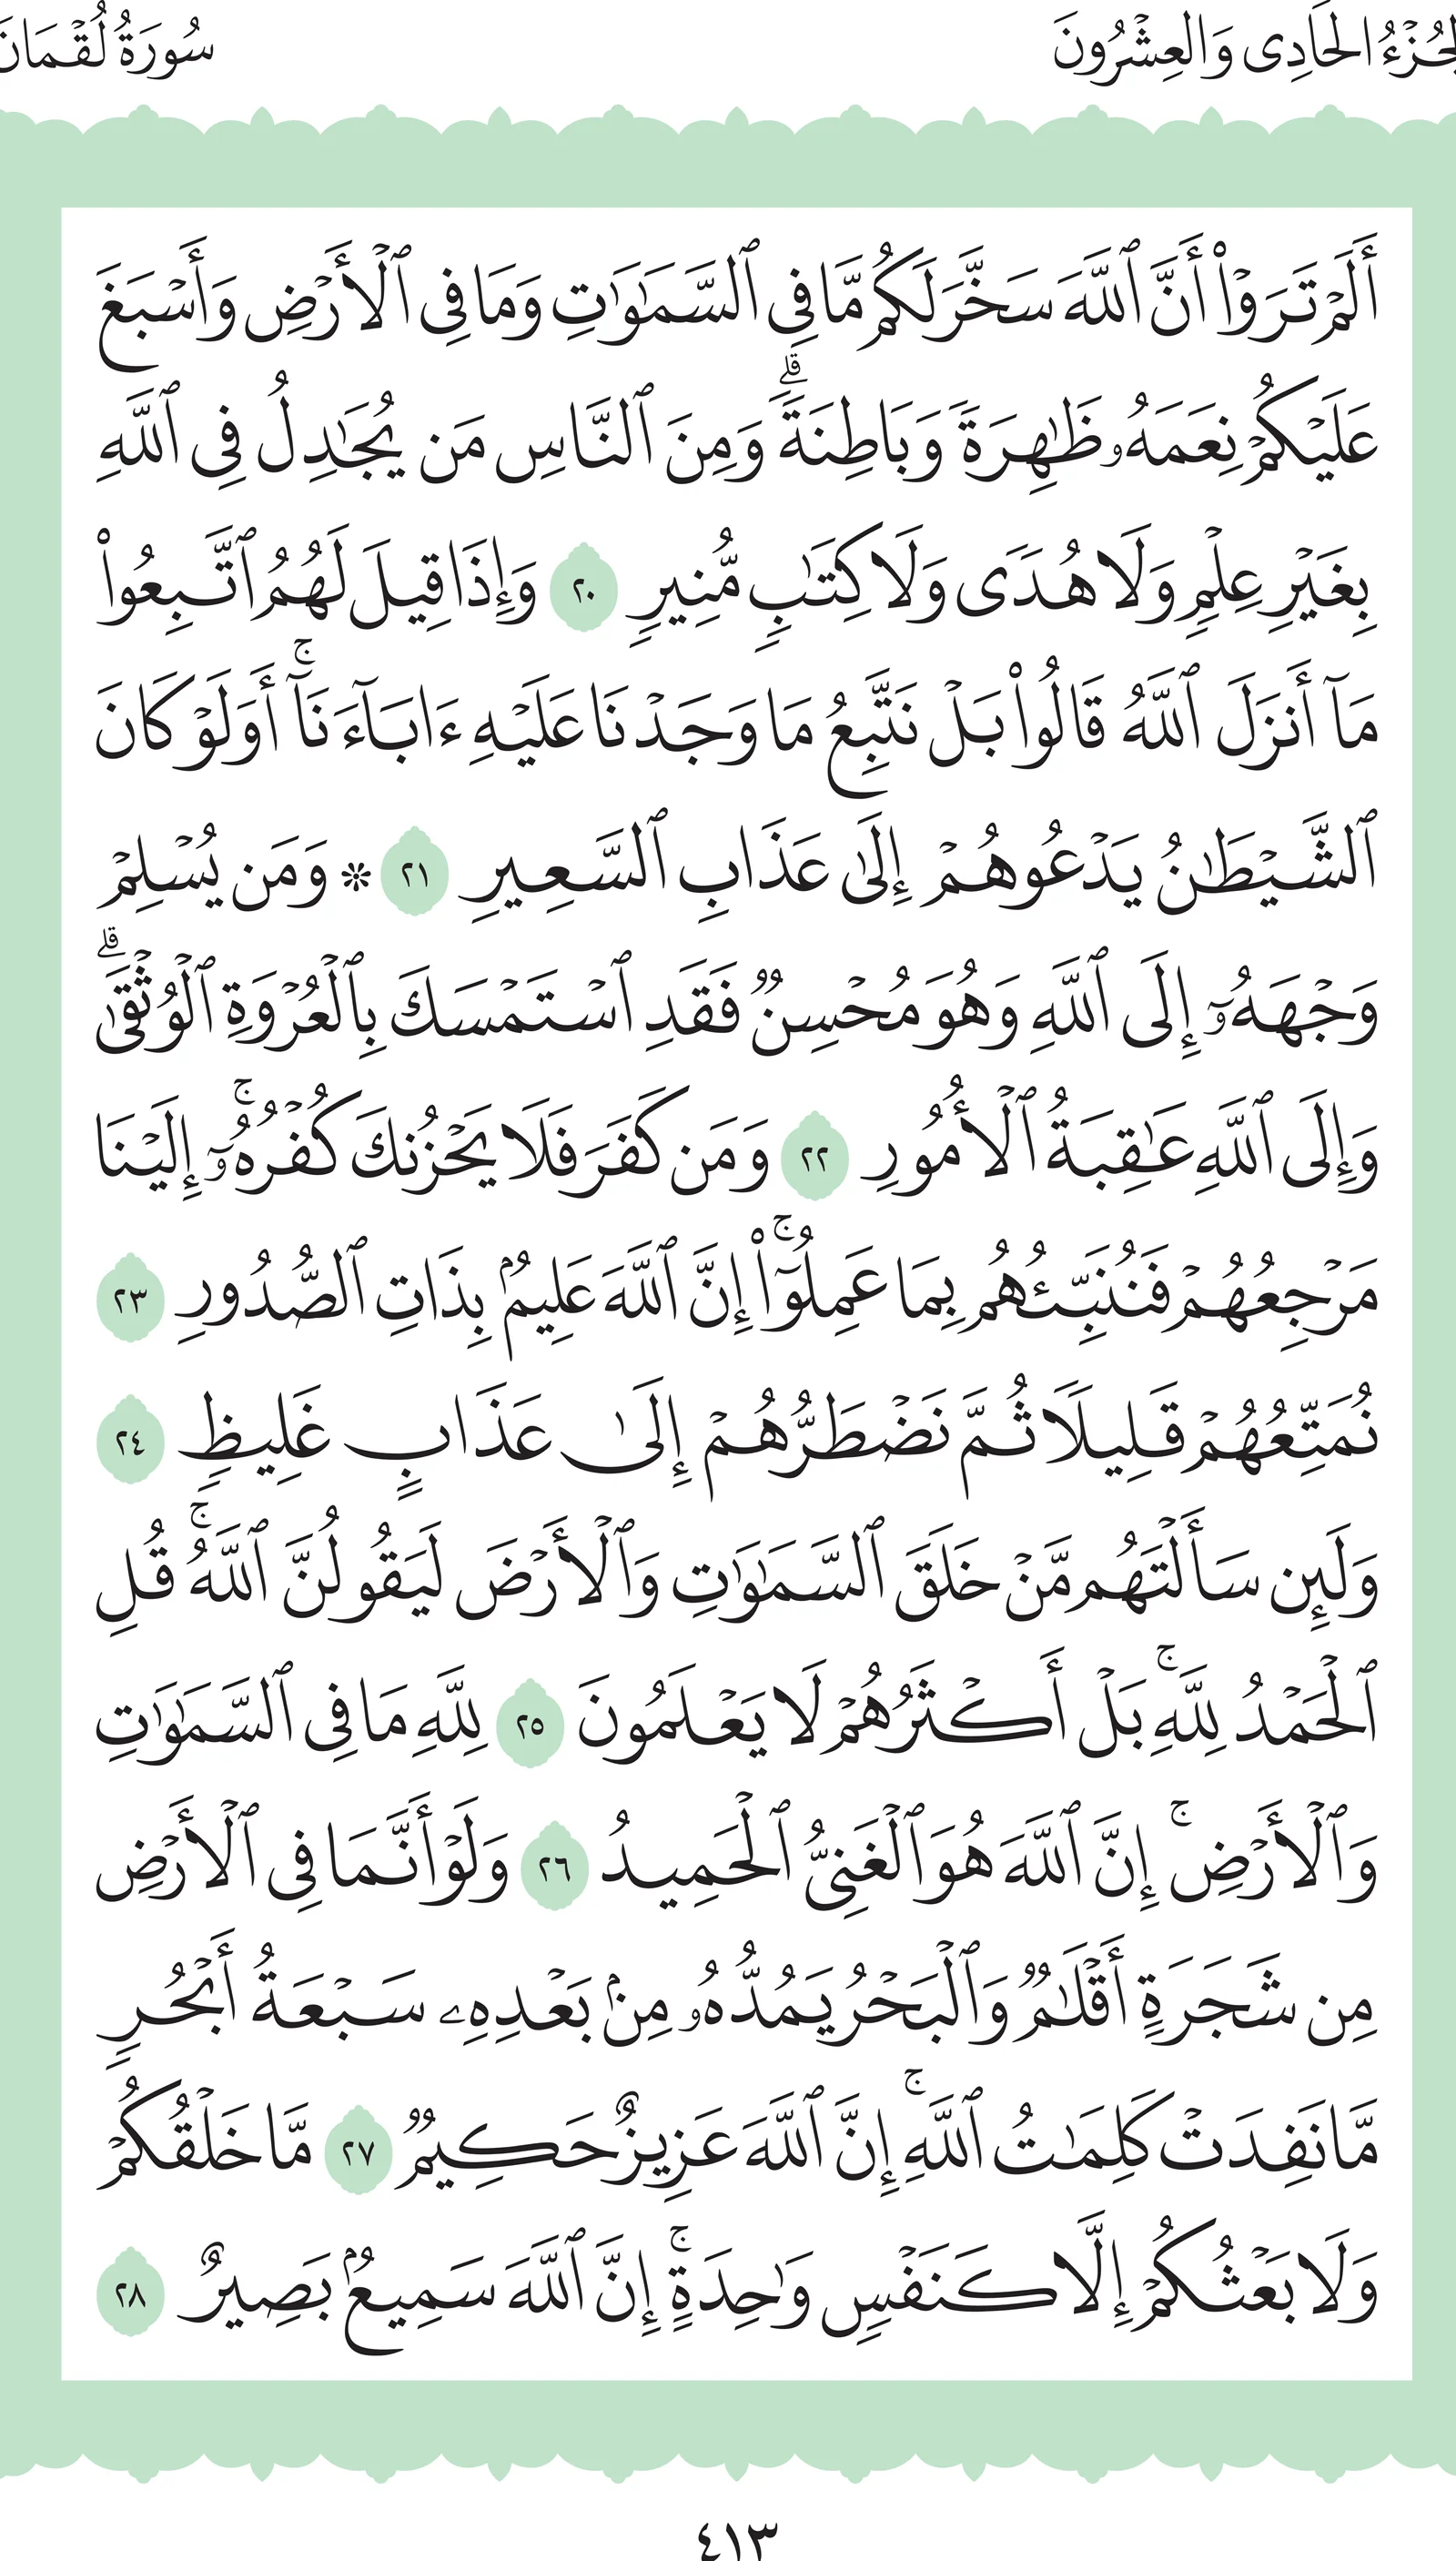 الجُزْءُ الحَادِي وَالعِشْرُونَ
سُورَةُ لُقْمَان
أَلَمْ تَرَوْا۟ أَنَّ ٱللَّهَ سَخَّرَ لَكُم مَّا فِى ٱلسَّمَـٰوَٰتِ وَمَا فِى ٱلْأَرْضِ وَأَسْبَغَ
عَلَيْكُمْ نِعَمَهُۥ ظَـٰهِرَةً وَبَاطِنَةً ۗ وَمِنَ ٱلنَّاسِ مَن يُجَـٰدِلُ فِى ٱللَّهِ
بِغَيْرِ عِلْمٍ وَلَا هُدًى وَلَا كِتَـٰبٍ مُّنِيرٍ ٢٠ وَإِذَا قِيلَ لَهُمُ ٱتَّبِعُوا۟
مَآ أَنزَلَ ٱللَّهُ قَالُوا۟ بَلْ نَتَّبِعُ مَا وَجَدْنَا عَلَيْهِ ءَابَآءَنَآ ۚ أَوَلَوْ كَانَ
ٱلشَّيْطَـٰنُ يَدْعُوهُمْ إِلَىٰ عَذَابِ ٱلسَّعِيرِ ٢١ ۞ وَمَن يُسْلِمْ
وَجْهَهُۥٓ إِلَى ٱللَّهِ وَهُوَ مُحْسِنٌ فَقَدِ ٱسْتَمْسَكَ بِٱلْعُرْوَةِ ٱلْوُثْقَىٰ ۗ
وَإِلَى ٱللَّهِ عَـٰقِبَةُ ٱلْأُمُورِ ٢٢ وَمَن كَفَرَ فَلَا يَحْزُنكَ كُفْرُهُۥٓ ۚ إِلَيْنَا
مَرْجِعُهُمْ فَنُنَبِّئُهُم بِمَا عَمِلُوٓا۟ ۚ إِنَّ ٱللَّهَ عَلِيمٌۢ بِذَاتِ ٱلصُّدُورِ ٢٣
نُمَتِّعُهُمْ قَلِيلًا ثُمَّ نَضْطَرُّهُمْ إِلَىٰ عَذَابٍ غَلِيظٍ ٢٤
وَلَئِن سَأَلْتَهُم مَّنْ خَلَقَ ٱلسَّمَـٰوَٰتِ وَٱلْأَرْضَ لَيَقُولُنَّ ٱللَّهُ ۚ قُلِ
ٱلْحَمْدُ لِلَّهِ ۚ بَلْ أَكْثَرُهُمْ لَا يَعْلَمُونَ ٢٥ لِلَّهِ مَا فِى ٱلسَّمَـٰوَٰتِ
وَٱلْأَرْضِ ۚ إِنَّ ٱللَّهَ هُوَ ٱلْغَنِىُّ ٱلْحَمِيدُ ٢٦ وَلَوْ أَنَّمَا فِى ٱلْأَرْضِ
مِن شَجَرَةٍ أَقْلَـٰمٌ وَٱلْبَحْرُ يَمُدُّهُۥ مِنۢ بَعْدِهِۦ سَبْعَةُ أَبْحُرٍ
مَّا نَفِدَتْ كَلِمَـٰتُ ٱللَّهِ ۚ إِنَّ ٱللَّهَ عَزِيزٌ حَكِيمٌ ٢٧ مَّا خَلْقُكُمْ
وَلَا بَعْثُكُمْ إِلَّا كَنَفْسٍ وَٰحِدَةٍ ۚ إِنَّ ٱللَّهَ سَمِيعٌۢ بَصِيرٌ ٢٨
٤١٣